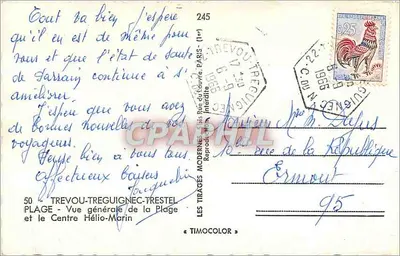 Tout va bien j'espère
qu'il en est de même pour
vous et que l'état de santé
de Parrain continue à s'
améliorer.
J'espère que vous avez
de bonnes nouvelles de vos
voyageurs.
Pense bien à vous tous.
Affectueux baisers
Jacqueline
50 TREVOU-TREGUIGNEC-TRESTEL
PLAGE - Vue générale de la Plage
et le Centre Hélio-Marin
245
LES TIRAGES MODERNES
PARIS - (1er)
Reproduction interdite
« TIMOCOLOR »
TREVOU-TREGUIGNEC
C. DU N.
17-30
6-9
1966
0,25
Monsieur Mme
rue de la République
Ermont
95
CPARAMA.COM